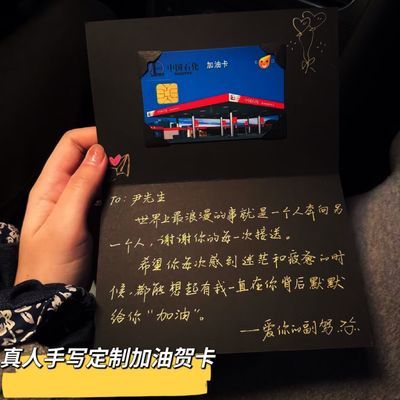 中国石化
加油卡
To：尹先生
世界上最浪漫的事就是一个人奔向另
一个人，谢谢你的每一次接送。
希望你每次感到迷茫和疲惫的时
候，都能想起有我一直在你背后默默
给你“加油”。
—爱你的副驾
真人手写定制加油贺卡